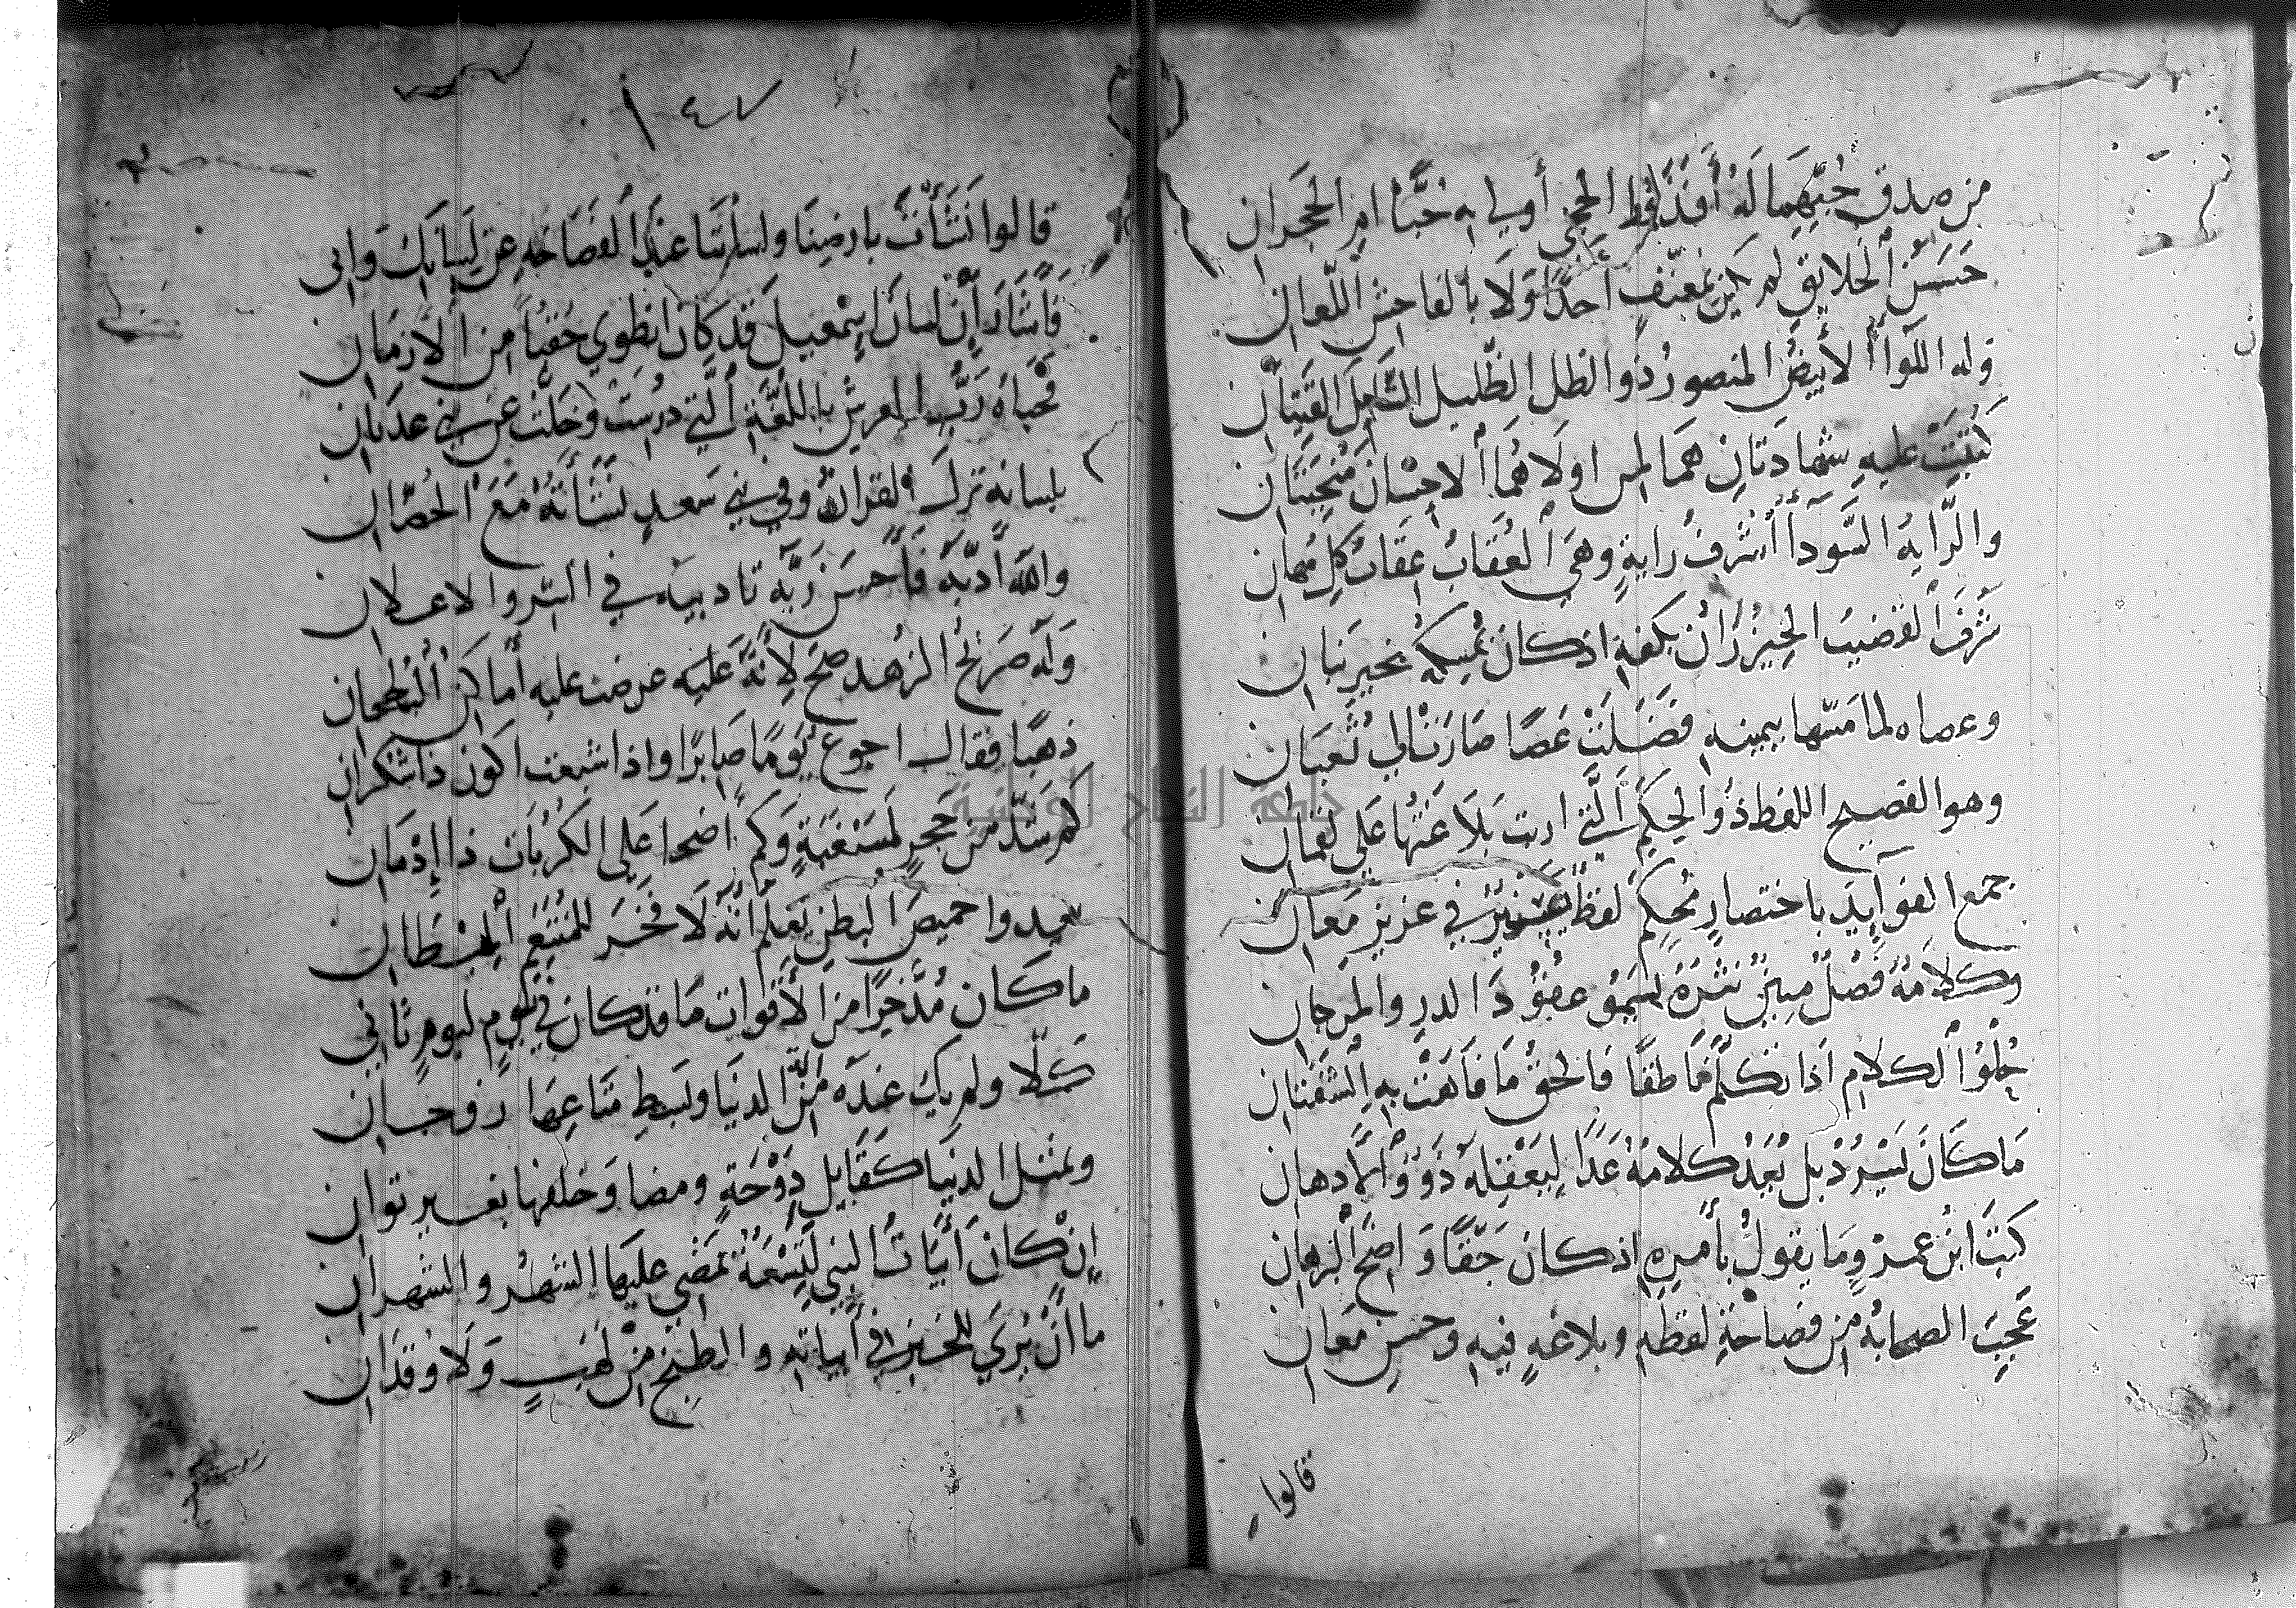 من صدق حبهما له أفذ لفظ الحجى أوبي به حبا امر الحجران
حسن الخلايق لم يكن بمعنف أحدا ولا بالفاحش اللعان
وله اللوا الأبيض المنصور ذو الظل الظليل الشامل الفتان
كتبت عليه شهادتان هما لمن اولاهما الاحسان منجيتان
والراية السودا أشرف راية وهي العقاب عقاب كل مهان
شرف القضيب الخيزران بكفه اذ كان يمسكه بخير بنان
وعصاه لما مسها بيمينه فضلت عصا صارت الى ثعبان
وهو الفصيح اللفظ ذو الحكم التي اربت بلاغتها على لقمان
جمع الفوايد باختصار محكم لفظ عزيز في عزيز معان
وكلامه فصل مبين نثره يسمو عقود الدر والمرجان
خلو الكلام اذا تكلم ناطقا فالحق ما فاهت به الشفتان
ما كان يسرد بل يعد كلامه عدا ليعقله ذوو الأذهان
كتب ابن عمرو ما يقول بأمره اذ كان حقا واضح البرهان
عجب الصحابة من فصاحة لفظه وبلاغة فيه وحسن معان
قالوا
١٤٧
قالوا نشأت بارضنا ولساننا عند الفصاحة عن لسانك وانى
فأشار أن لسان إسمعيل قد كان انطوي حقبا من الأزمان
فحباه رب العرش باللغة التي درست وخلت عن بني عدنان
بلسانه نزل القران وفي بني سعد نشأته مع الحضان
والله أدبه فأحسن ربه تاديبه في السر والاعلان
وله صريح الزهد صح لأنه عليه عرضت عليه أماكن البطحان
ذهبا فقال اجوع يوما صابرا واذا شبعت اكون ذا شكران
كم شد من حجر لمسغبة وكم اضحا على الكربات ذا إدمان
يغدوا خميص البطن يعلم انه لا فخر للمتنعم المبطان
ما كان مدخرا من الأقوات ما قد كان في يوم ليوم ثاني
كلا ولم يك عنده من الدنيا وبسط متاعها زوجان
ومثل الدنيا كقايل دوحة ومضا وخلفها بغير توان
إن كان أبيات النبي لتسعة تمضي عليها الشهر والشهران
ما ان يرى للخبز في أبياته والطبخ من لهب ولا وقدان